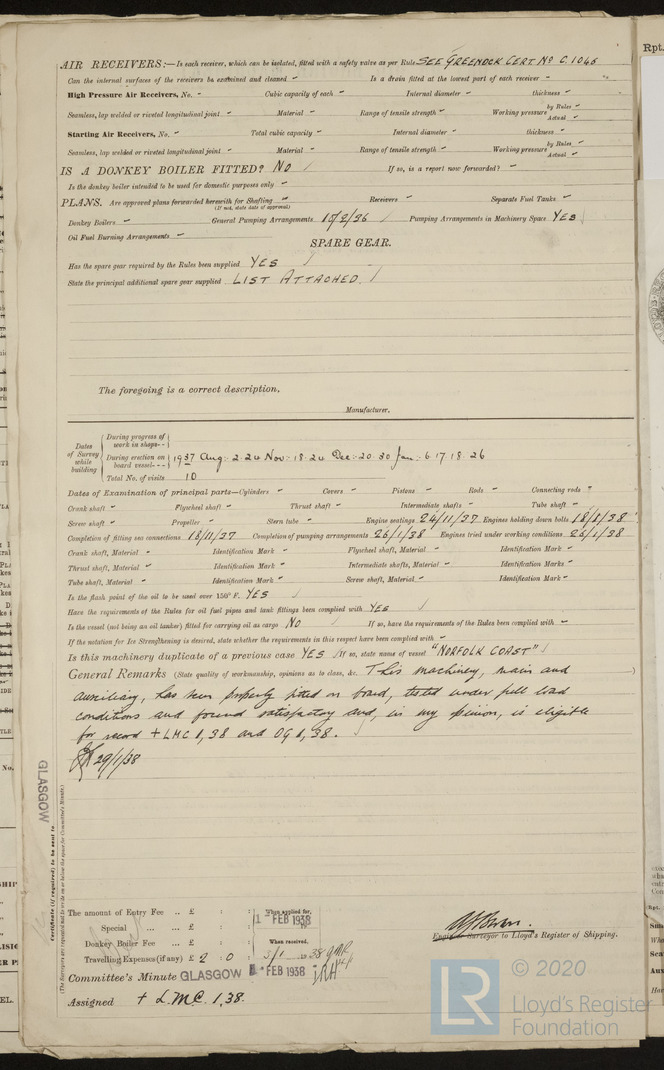 AIR RECEIVERS:—Is each receiver, which can be isolated, fitted with a safety valve as per Rule SEE GREENOCK CERT. No C.1046
Can the internal surfaces of the receivers be examined and cleaned - Is a drain fitted at the lowest part of each receiver -
High Pressure Air Receivers, No. - Cubic capacity of each - Internal diameter - thickness -
Seamless, lap welded or riveted longitudinal joint - Material - Range of tensile strength - Working pressure by Rules - Actual -
Starting Air Receivers, No. - Total cubic capacity - Internal diameter - thickness -
Seamless, lap welded or riveted longitudinal joint - Material - Range of tensile strength - Working pressure by Rules - Actual -
IS A DONKEY BOILER FITTED? NO / If so, is a report now forwarded? -
Is the donkey boiler intended to be used for domestic purposes only -
PLANS. Are approved plans forwarded herewith for Shafting - Receivers - Separate Fuel Tanks -
(If not, state date of approval)
Donkey Boilers - General Pumping Arrangements 10/2/36 / Pumping Arrangements in Machinery Space YES
Oil Fuel Burning Arrangements -
SPARE GEAR.
Has the spare gear required by the Rules been supplied YES /
State the principal additional spare gear supplied LIST ATTACHED. /
The foregoing is a correct description,
Manufacturer.
Dates of Survey while building
During progress of work in shops--
During erection on board vessel--- 1937 Aug:- 2. 24 Nov:- 18. 24 Dec:- 20. 30 Jan:- 6. 17. 18. 26
Total No. of visits 10
Dates of Examination of principal parts—Cylinders - Covers - Pistons - Rods - Connecting rods -
Crank shaft - Flywheel shaft - Thrust shaft - Intermediate shafts - Tube shaft -
Screw shaft - Propeller - Stern tube - Engine seatings 24/11/37 Engines holding down bolts 18/1/38
Completion of fitting sea connections 18/11/37 Completion of pumping arrangements 26/1/38 Engines tried under working conditions 26/1/38
Crank shaft, Material - Identification Mark - Flywheel shaft, Material - Identification Mark -
Thrust shaft, Material - Identification Mark - Intermediate shafts, Material - Identification Marks -
Tube shaft, Material - Identification Mark - Screw shaft, Material - Identification Mark -
Is the flash point of the oil to be used over 150° F. YES /
Have the requirements of the Rules for oil fuel pipes and tank fittings been complied with YES /
Is the vessel (not being an oil tanker) fitted for carrying oil as cargo NO / If so, have the requirements of the Rules been complied with -
If the notation for Ice Strengthening is desired, state whether the requirements in this respect have been complied with -
Is this machinery duplicate of a previous case YES / If so, state name of vessel "NORFOLK COAST" /
General Remarks (State quality of workmanship, opinions as to class, &c. This machinery, main and
auxiliary, has been properly fitted on board, tested under full load
conditions and found satisfactory and, in my opinion, is eligible
for record + LMC 1,38 and OG 1,38.
29/1/38
GLASGOW
Certificate (if required) to be sent to
(The Surveyors are requested not to write on or below the space for Committee's Minute.)
The amount of Entry Fee .. £ : :
Special ... ... £ : :
Donkey Boiler Fee ... £ : :
Travelling Expenses (if any) £ 2 : 0 :
When applied for,
1 FEB 1938
When received,
Engine Surveyor to Lloyd's Register of Shipping.
Committee's Minute GLASGOW 1 FEB 1938
Assigned + L.M.C. 1,38.
LR © 2020
Lloyd's Register
Foundation
Rpt.